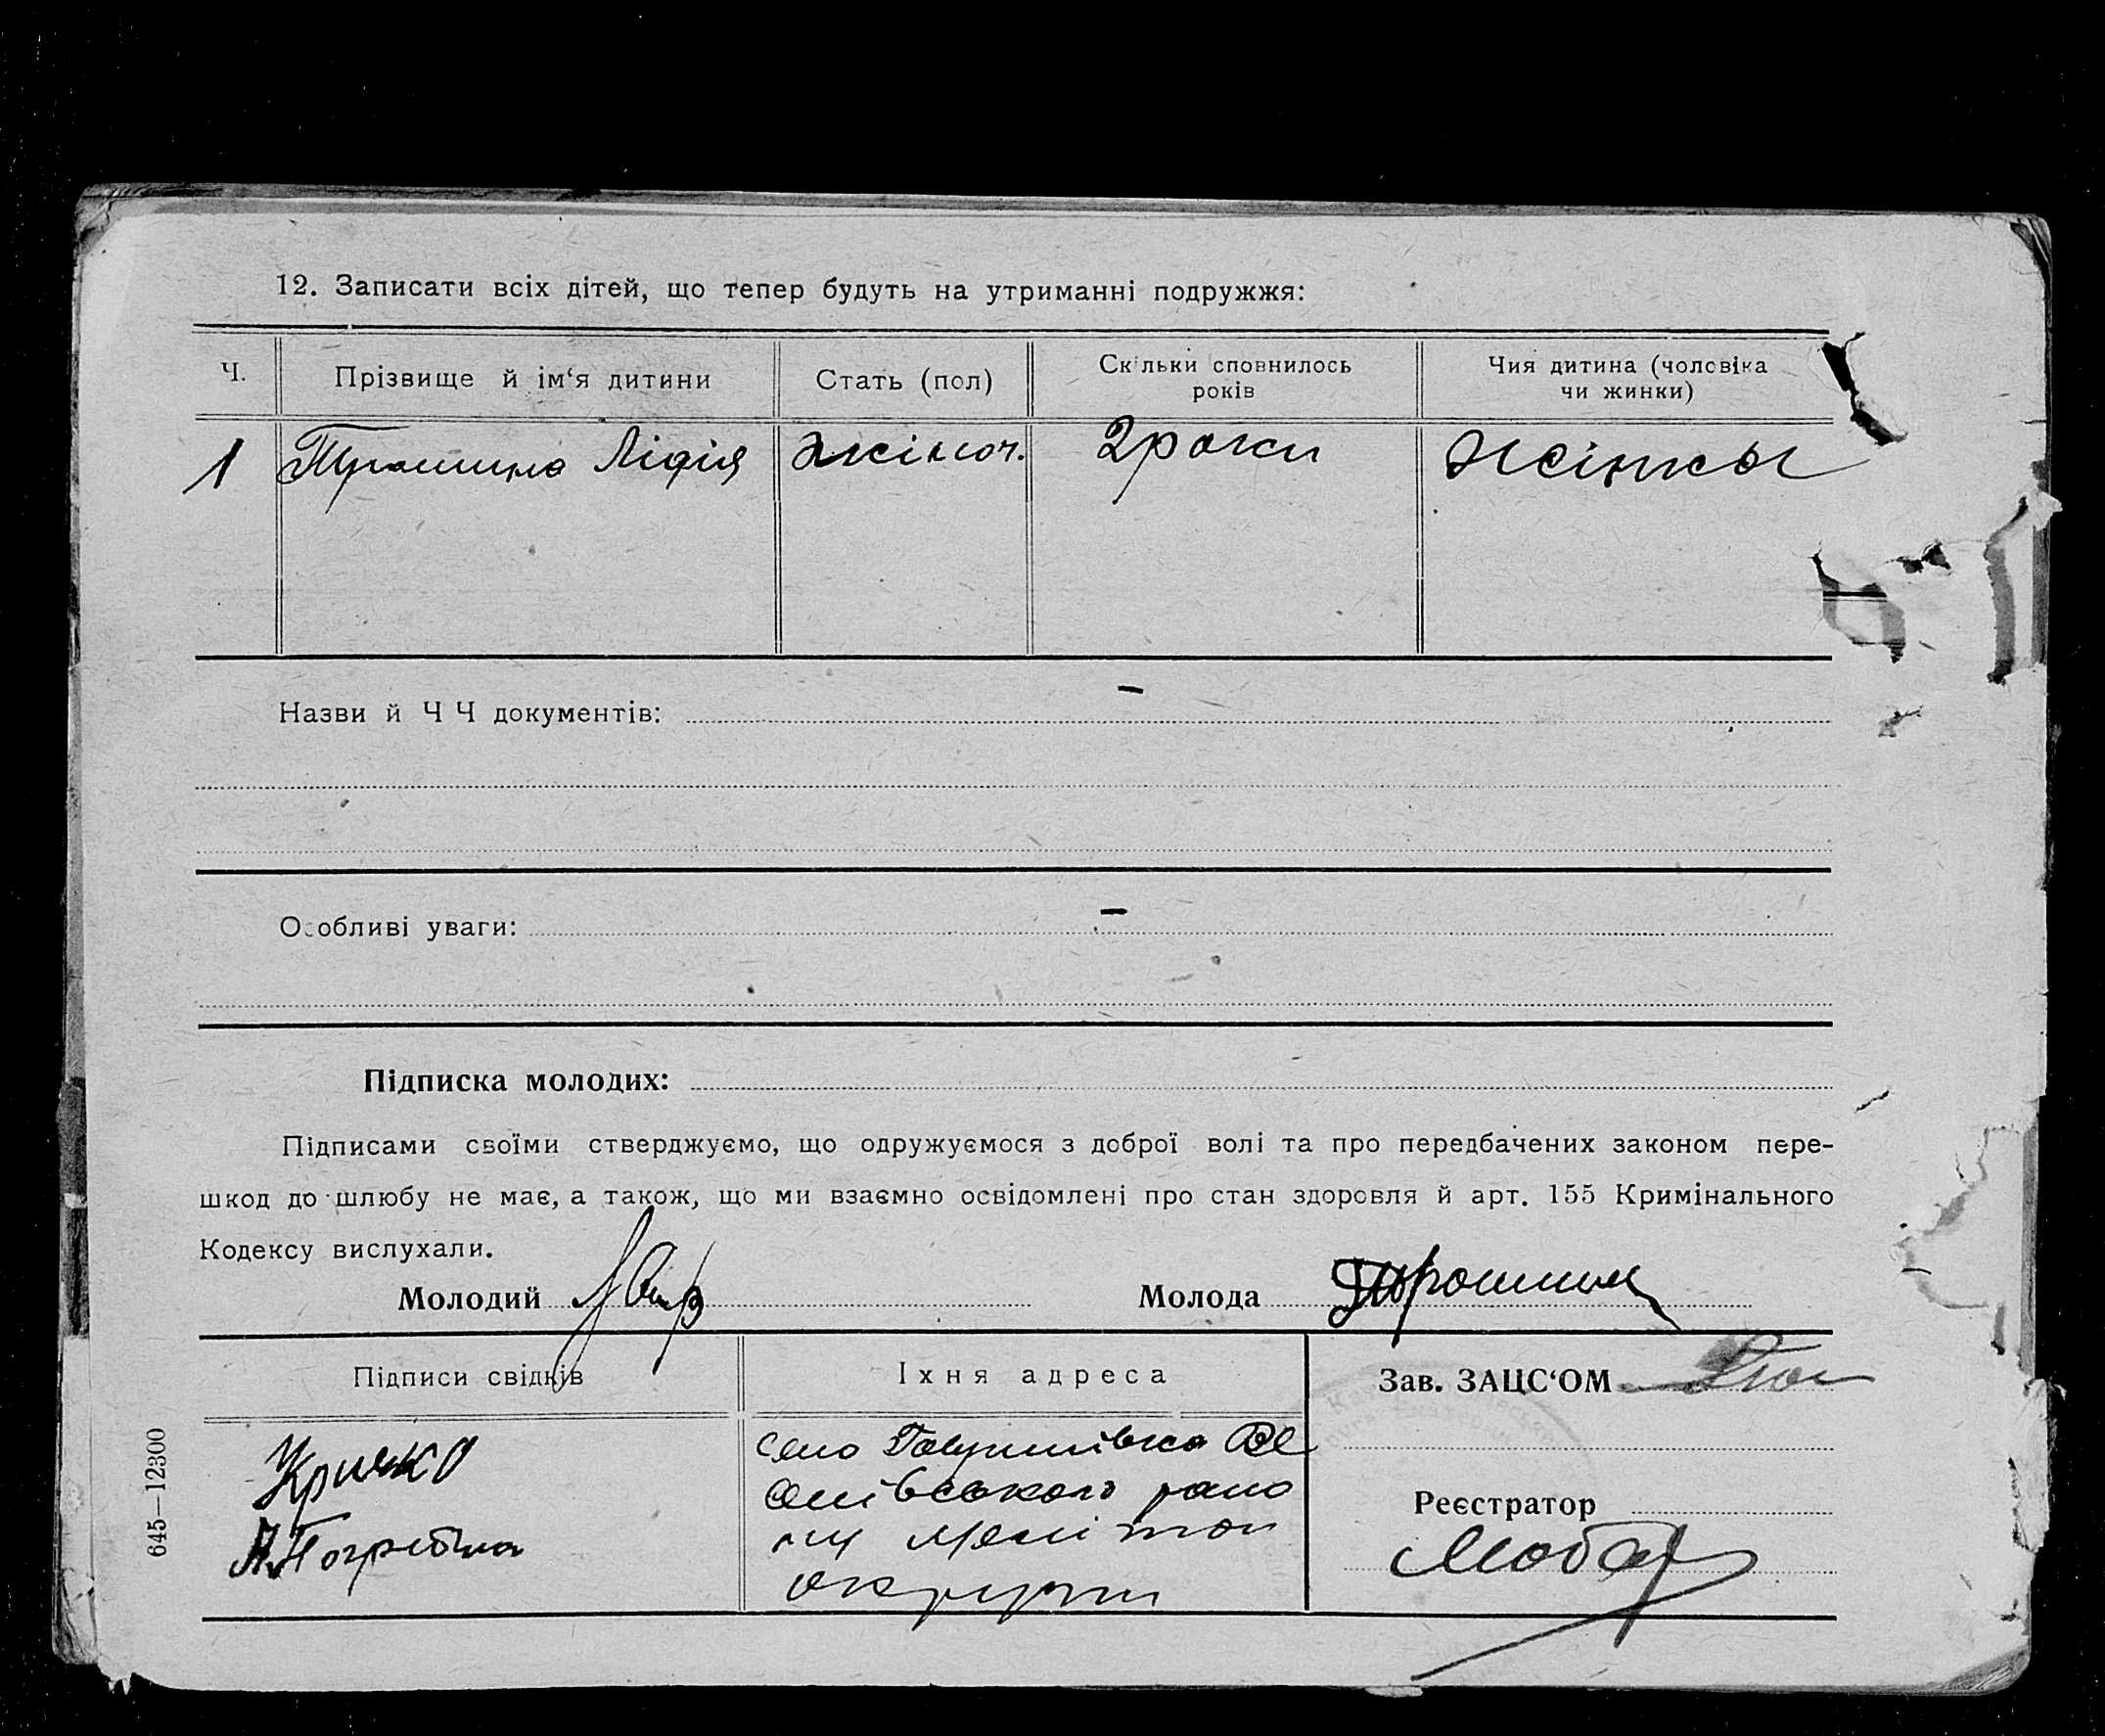 12. Записати всіх дітей, що тепер будуть на утриманні подружжя:
Ч.
Прізвище й ім‘я дитини
Стать (пол)
Скільки сповнилось
років
Чия дитина (чоловіка
чи жинки)
1 Трошина Лідія жіноч. 2 роки Жінкы
Назви й ЧЧ документів: –
Особливі уваги: –
Підписка молодих:
Підписами своїми стверджуємо, що одружуємося з доброї волі та про передбачених законом пере-
шкод до шлюбу не має, а також, що ми взаємно освідомлені про стан здоровля й арт. 155 Кримінального
Кодексу вислухали.
Молодий
Молода Трошина
Підписи свідків
Їхня адреса
Зав. ЗАЦС‘ОМ
Кричко
А. Погребна
село Гавришівка
району Мелітоп
округи
Реєстратор
645—12300